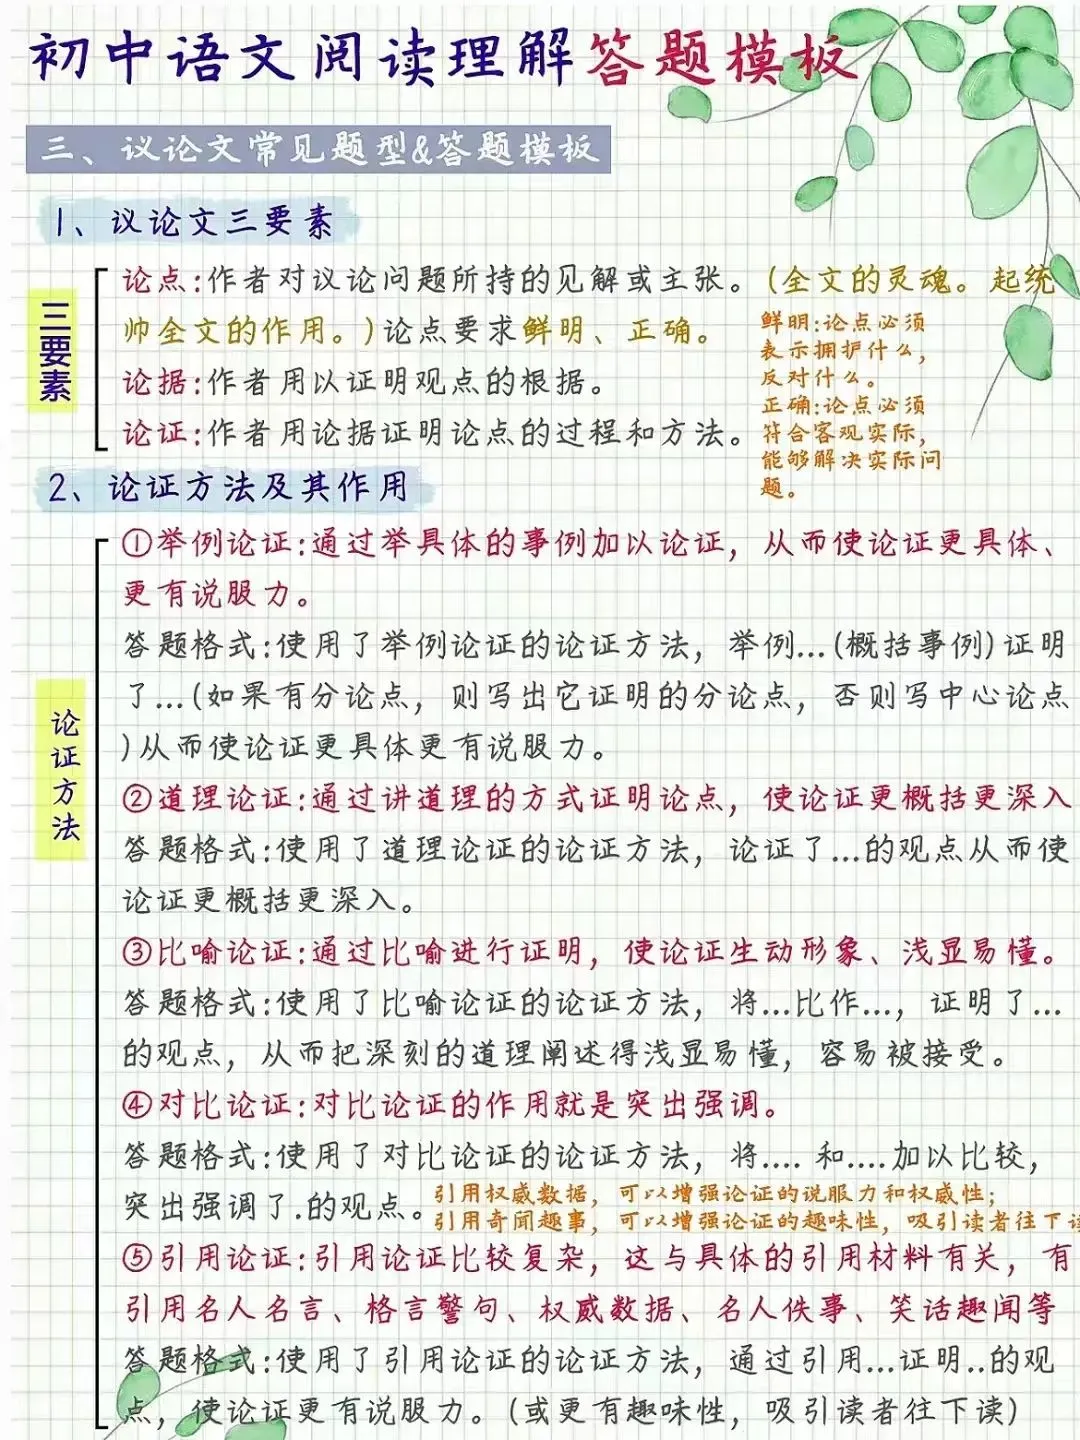 初中语文阅读理解答题模板
三、议论文常见题型&答题模板
1、议论文三要素
三要素
论点:作者对议论问题所持的见解或主张。(全文的灵魂。起统
帅全文的作用。)论点要求鲜明、正确。
论据:作者用以证明观点的根据。
论证:作者用论据证明论点的过程和方法。
鲜明:论点必须
表示拥护什么,
反对什么。
正确:论点必须
符合客观实际,
能够解决实际问
题。
2、论证方法及其作用
论证方法
①举例论证:通过举具体的事例加以论证，从而使论证更具体、
更有说服力。
答题格式:使用了举例论证的论证方法，举例...(概括事例)证明
了...(如果有分论点，则写出它证明的分论点，否则写中心论点
)从而使论证更具体更有说服力。
②道理论证:通过讲道理的方式证明论点，使论证更概括更深入
答题格式:使用了道理论证的论证方法，论证了...的观点从而使
论证更概括更深入。
③比喻论证:通过比喻进行证明，使论证生动形象、浅显易懂。
答题格式:使用了比喻论证的论证方法，将...比作...，证明了...
的观点，从而把深刻的道理阐述得浅显易懂，容易被接受。
④对比论证:对比论证的作用就是突出强调。
答题格式:使用了对比论证的论证方法，将.... 和....加以比较，
突出强调了.的观点。
引用权威数据，可以增强论证的说服力和权威性;
引用奇闻趣事，可以增强论证的趣味性，吸引读者往下读
⑤引用论证:引用论证比较复杂，这与具体的引用材料有关，有
引用名人名言、格言警句、权威数据、名人佚事、笑话趣闻等
答题格式:使用了引用论证的论证方法，通过引用...证明..的观
点，使论证更有说服力。(或更有趣味性，吸引读者往下读)